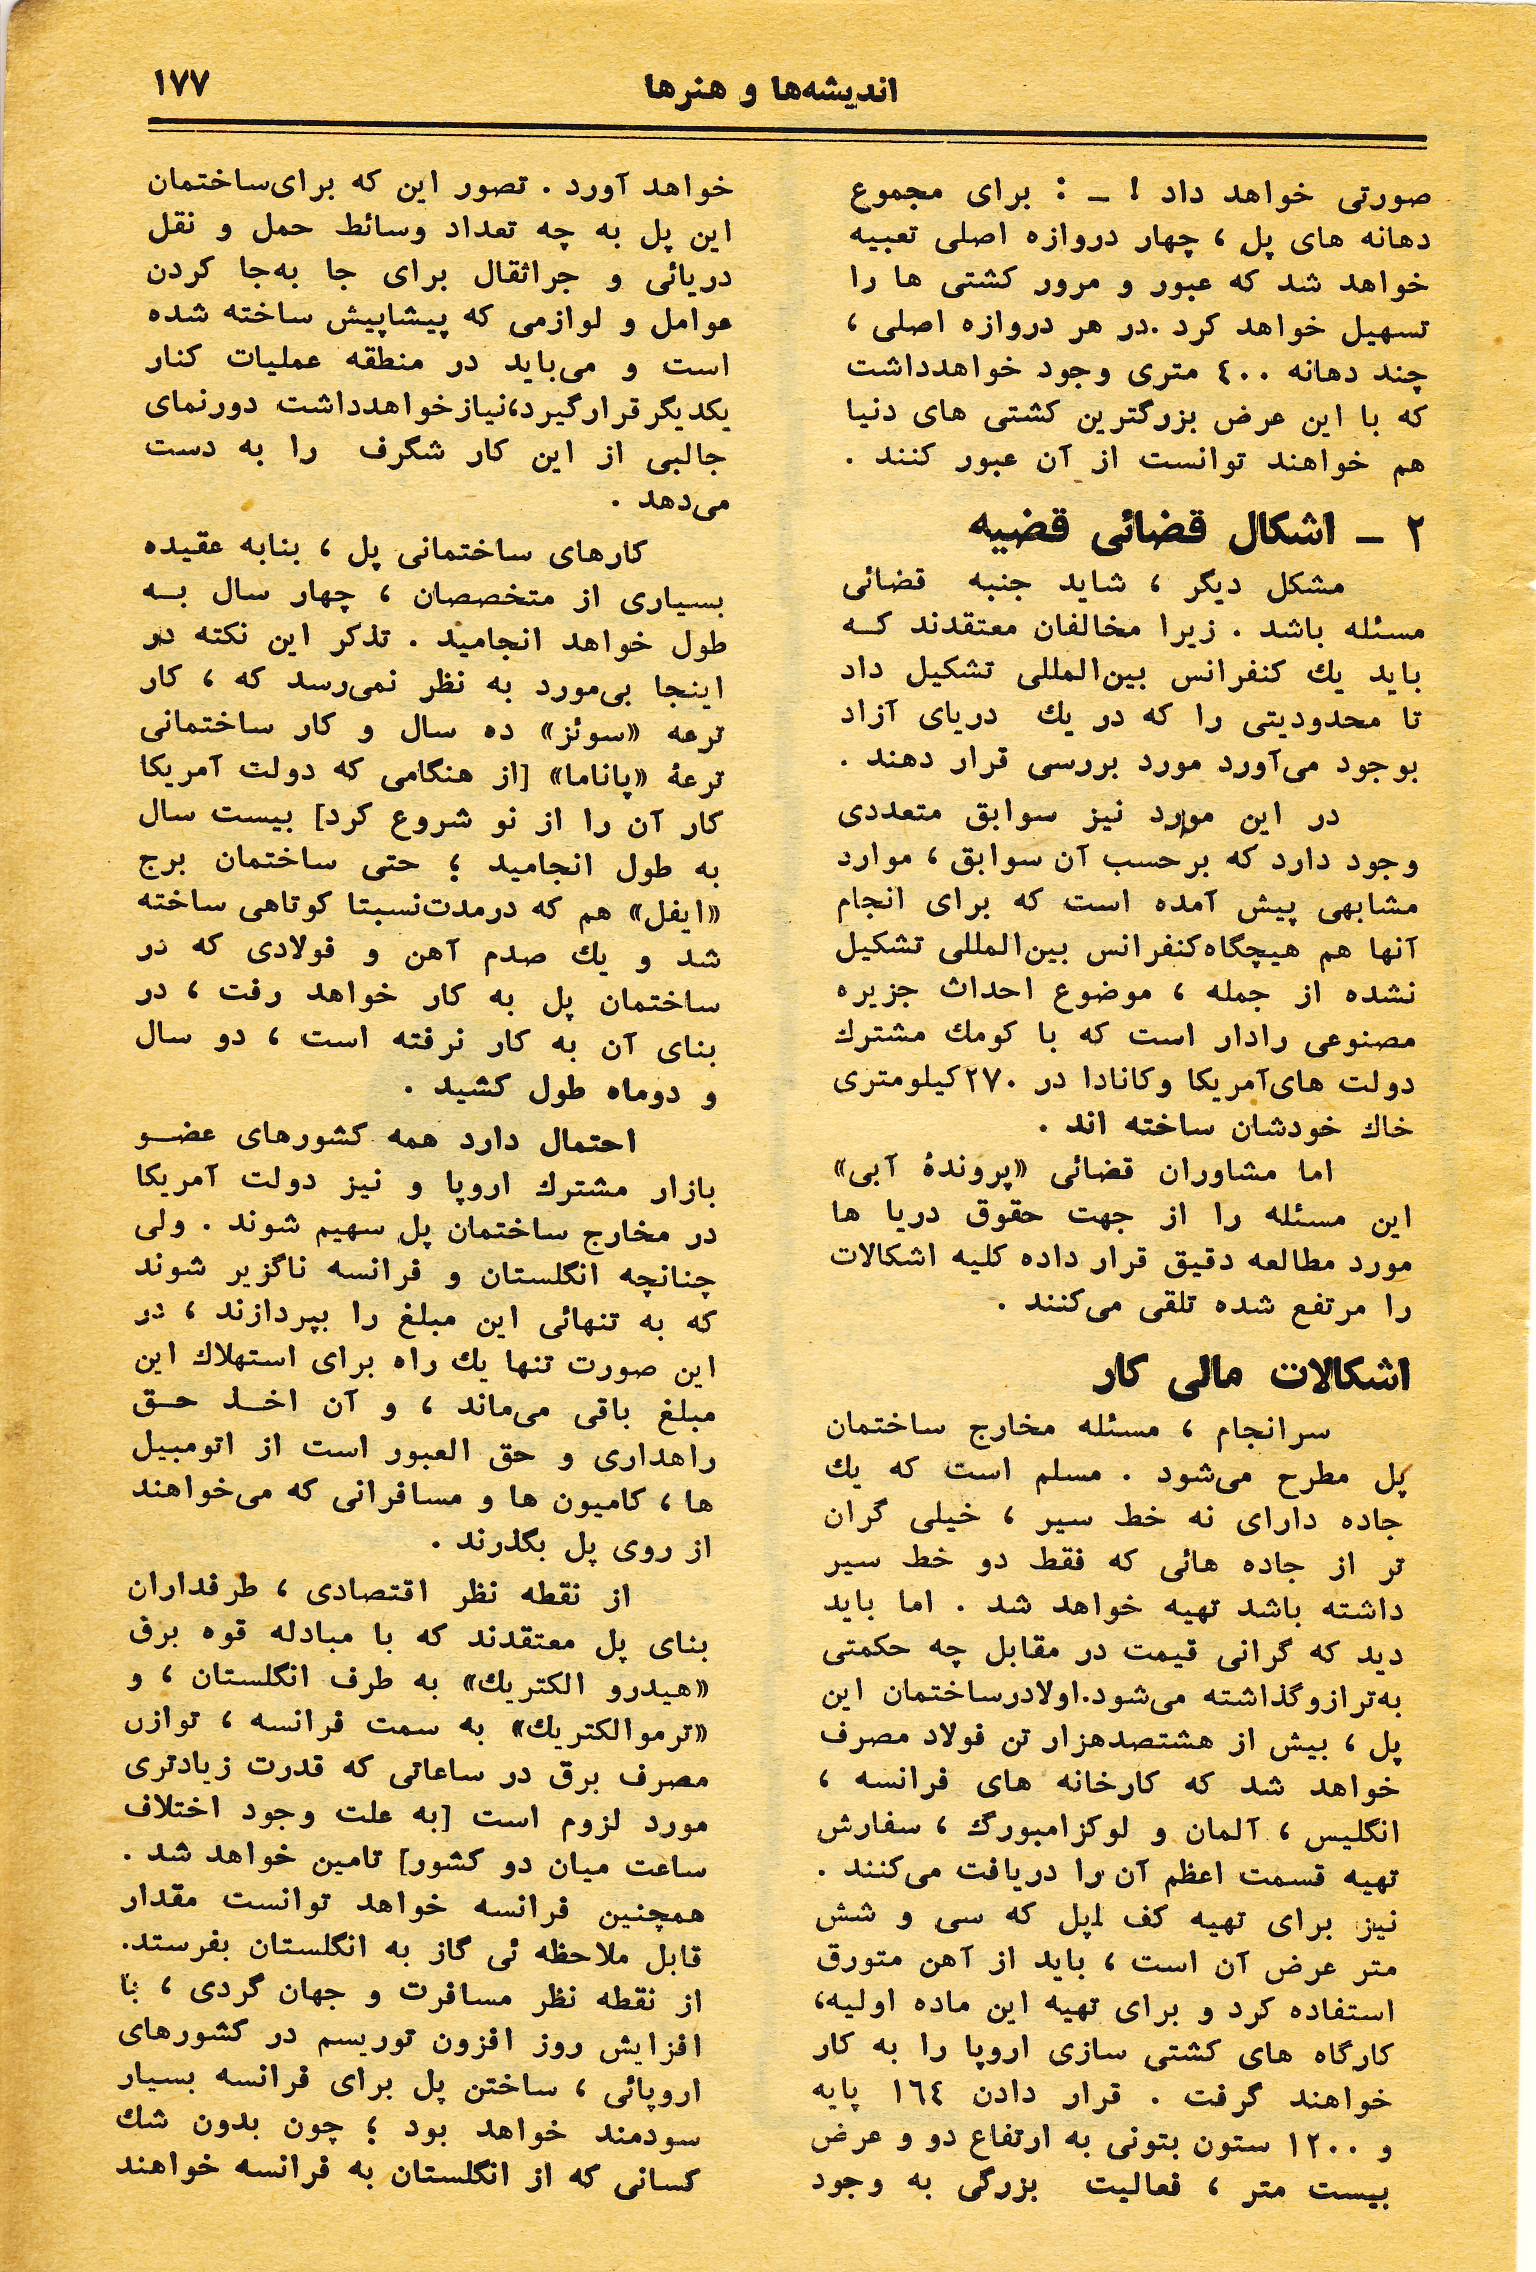 اندیشه‌ها و هنرها
۱۷۷
صورتی خواهد داد ! ـ : برای مجموع
دهانه های پل ، چهار دروازه اصلی تعبیه
خواهد شد که عبور و مرور کشتی ها را
تسهیل خواهد کرد .در هر دروازه اصلی ،
چند دهانه ۴۰۰ متری وجود خواهدداشت
که با این عرض بزرگترین کشتی های دنیا
هم خواهند توانست از آن عبور کنند .
۲ ـ اشکال قضائی قضیه
مشکل دیگر ، شاید جنبه قضائی
مسئله باشد . زیرا مخالفان معتقدند کـه
باید یك کنفرانس بین‌المللی تشکیل داد
تا محدودیتی را که در یك دریای آزاد
بوجود می‌آورد مورد بررسی قرار دهند .
در این مورد نیز سوابق متعددی
وجود دارد که برحسب آن سوابق ، موارد
مشابهی پیش آمده است که برای انجام
آنها هم هیچگاه‌کنفرانس بین‌المللی تشکیل
نشده از جمله ، موضوع احداث جزیره
مصنوعی رادار است که با کومك مشترك
دولت های‌آمریکا وکانادا در ۲۷۰کیلومتری
خاك خودشان ساخته اند .
اما مشاوران قضائی «پروندهٔ آبی»
این مسئله را از جهت حقوق دریا ها
مورد مطالعه دقیق قرار داده کلیه اشکالات
را مرتفع شده تلقی می‌کنند .
اشکالات مالی کار
سرانجام ، مسئله مخارج ساختمان
پل مطرح می‌شود . مسلم است که یك
جاده دارای نه خط سیر ، خیلی گران
تر از جاده هائی که فقط دو خط سیر
داشته باشد تهیه خواهد شد . اما باید
دید که گرانی قیمت در مقابل چه حکمتی
به‌ترازوگذاشته می‌شود.اولادرساختمان این
پل ، بیش از هشتصدهزار تن فولاد مصرف
خواهد شد که کارخانه های فرانسه ،
انگلیس ، آلمان و لوکزامبورگ ، سفارش
تهیه قسمت اعظم آن را دریافت می‌کنند .
نیز برای تهیه کف پل که سی و شش
متر عرض آن است ، باید از آهن متورق
استفاده کرد و برای تهیه این ماده اولیه،
کارگاه های کشتی سازی اروپا را به کار
خواهند گرفت . قرار دادن ۱۶۴ پایه
و ۱۲۰۰ ستون بتونی به ارتفاع دو و عرض
بیست متر ، فعالیت بزرگی به وجود
خواهد آورد . تصور این که برای‌ساختمان
این پل به چه تعداد وسائط حمل و نقل
دریائی و جراثقال برای جا به‌جا کردن
عوامل و لوازمی که پیشاپیش ساخته شده
است و می‌باید در منطقه عملیات کنار
یکدیگرقرارگیرد،نیازخواهدداشت دورنمای
جالبی از این کار شگرف را به دست
می‌دهد .
کارهای ساختمانی پل ، بنابه عقیده
بسیاری از متخصصان ، چهار سال بـه
طول خواهد انجامید . تذکر این نکته در
اینجا بی‌مورد به نظر نمی‌رسد که ، کار
ترعه «سوئز» ده سال و کار ساختمانی
ترعهٔ «پاناما» [از هنگامی که دولت آمریکا
کار آن را از نو شروع کرد] بیست سال
به طول انجامید ؛ حتی ساختمان برج
«ایفل» هم که درمدت‌نسبتا کوتاهی ساخته
شد و یك صدم آهن و فولادی که در
ساختمان پل به کار خواهد رفت ، در
بنای آن به کار نرفته است ، دو سال
و دوماه طول کشید .
احتمال دارد همه کشورهای عضـو
بازار مشترك اروپا و نیز دولت آمریکا
در مخارج ساختمان پل سهیم شوند . ولی
چنانچه انگلستان و فرانسه ناگزیر شوند
که به تنهائی این مبلغ را بپردازند ، در
این صورت تنها یك راه برای استهلاك این
مبلغ باقی می‌ماند ، و آن اخـذ حـق
راهداری و حق العبور است از اتومبیل
ها ، کامیون ها و مسافرانی که می‌خواهند
از روی پل بگذرند .
از نقطه نظر اقتصادی ، طرفداران
بنای پل معتقدند که با مبادله قوه برق
«هیدرو الکتریك» به طرف انگلستان ، و
«ترموالکتریك» به سمت فرانسه ، توازن
مصرف برق در ساعاتی که قدرت زیادتری
مورد لزوم است [به علت وجود اختلاف
ساعت میان دو کشور] تامین خواهد شد .
همچنین فرانسه خواهد توانست مقدار
قابل ملاحظه ئی گاز به انگلستان بفرستد.
از نقطه نظر مسافرت و جهان گردی ، با
افزایش روز افزون توریسم در کشورهای
اروپائی ، ساختن پل برای فرانسه بسیار
سودمند خواهد بود ؛ چون بدون شك
کسانی که از انگلستان به فرانسه خواهند